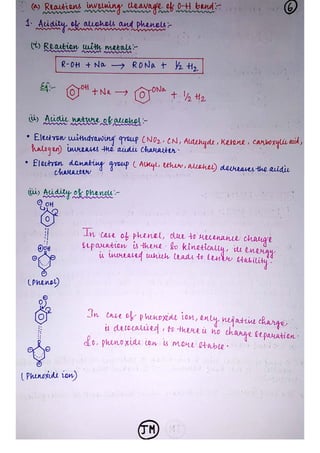 (A) Reactions involving cleavage of O-H bond:-
6
1. Acidity of alcohols and phenols:-
(i) Reaction with metals:-
R-OH + Na → RONa + ½ H₂
Eg:- OH + Na → ONa + ½ H₂
(ii) Acidic nature of alcohol:-
• Electron withdrawing group (NO₂, CN, Aldehyde, Ketone, carboxylic acid,
halogen) increases the acidic character.
• Electron donating group (Alkyl, ether, alcohol) decreases the acidic
character
(iii) Acidity of phenols:-
OH
In case of phenol, due to resonance charge
separation is there. So kinetically, its energy
is increased which leads to lesser stability.
(Phenol)
In case of phenoxide ion, only negative charge
is delocalised, so there is no charge separation.
So, phenoxide ion is more stable.
(Phenoxide ion)
JM